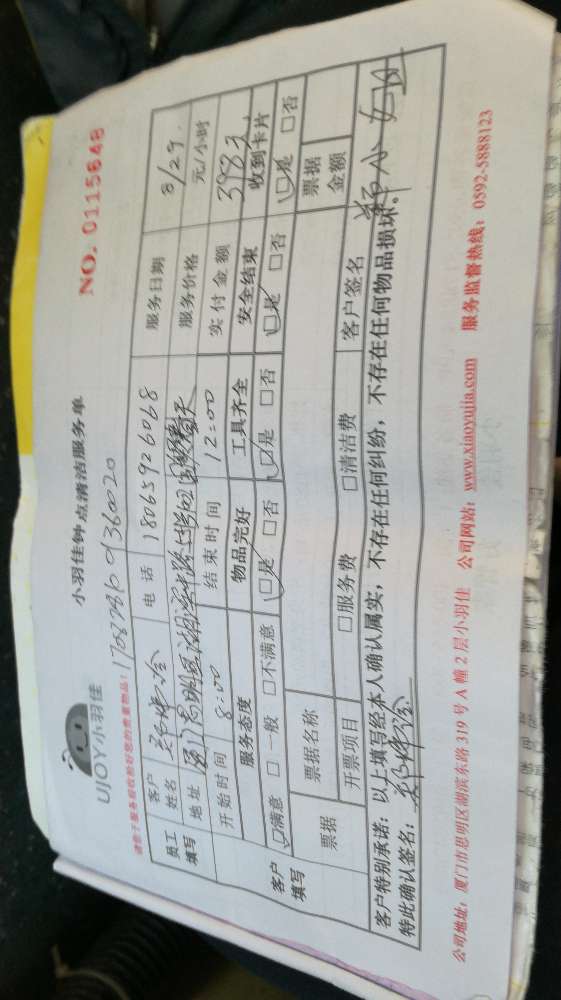 UJOY小羽佳
小羽佳钟点清洁服务单
NO. 0115648
请您于服务前收拾好您的贵重物品!
员工填写
客户姓名
电话 18065926068
服务日期 8/29
地址
服务价格 元/小时
开始时间 8:00
结束时间 12:00
实付金额
客户填写
服务态度 物品完好 工具齐全 安全结束 收到卡片
☑满意 □一般 □不满意 ☑是 □否 ☑是 □否 ☑是 □否 ☑是 □否
票据 票据名称 票据金额
开票项目 □服务费 □清洁费 客户签名
客户特别承诺:以上填写经本人确认属实,不存在任何纠纷,不存在任何物品损坏。
特此确认签名:
公司地址:厦门市思明区湖滨东路319号A幢2层小羽佳 公司网站:www.xiaoyujia.com 服务监督热线:0592-5888123